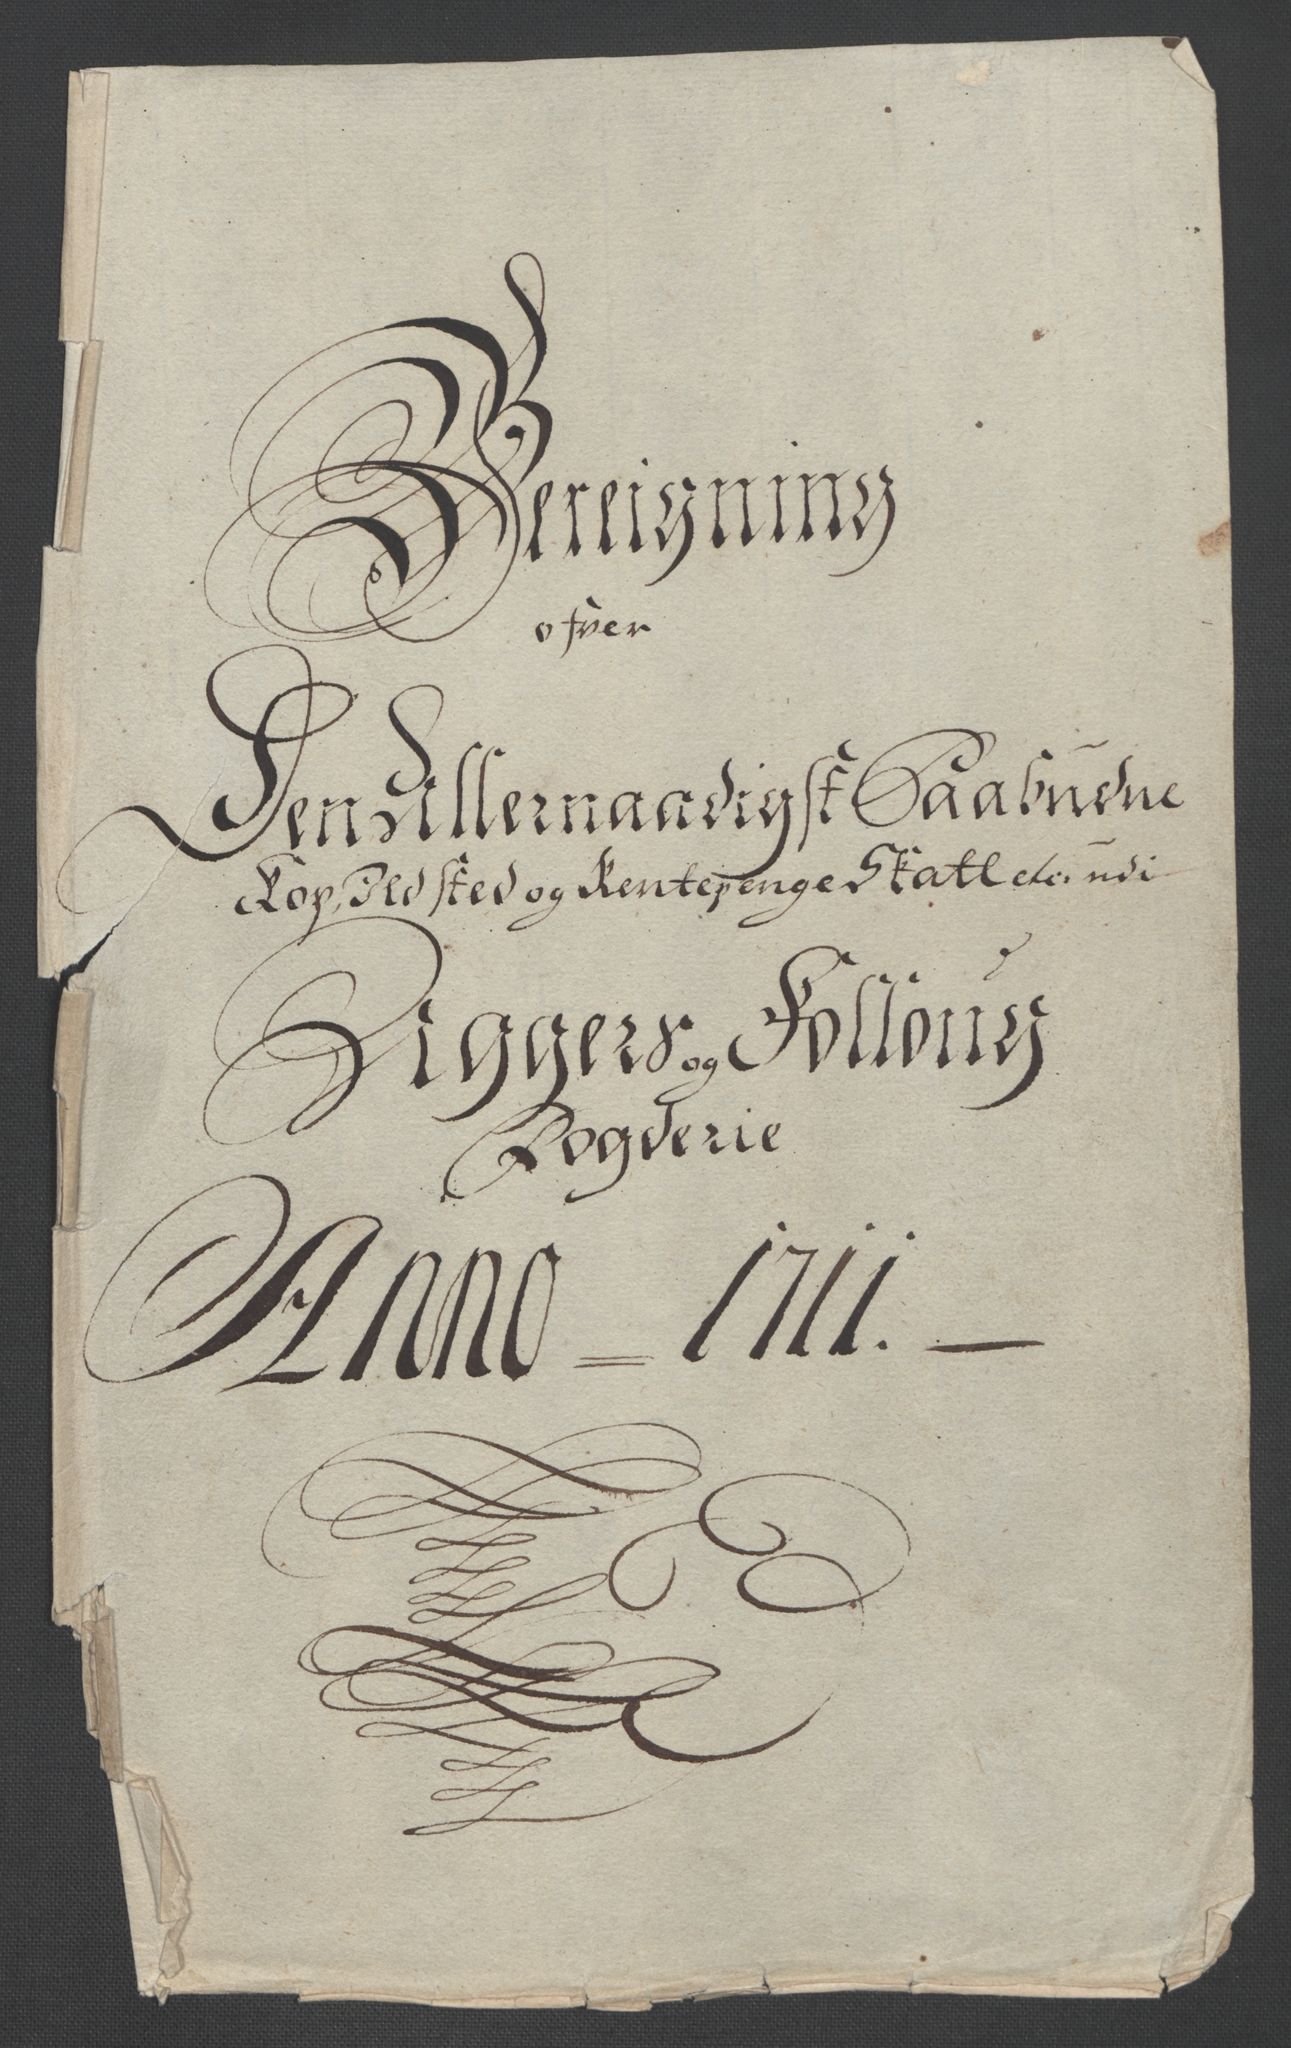 Bereigning
ofver
Den Allernaadigst Paabudne
Kop, Ildsted og Rentepenge Skatt etc: udi
Aggers og Folloug
Fogderie
Anno = 1711. —